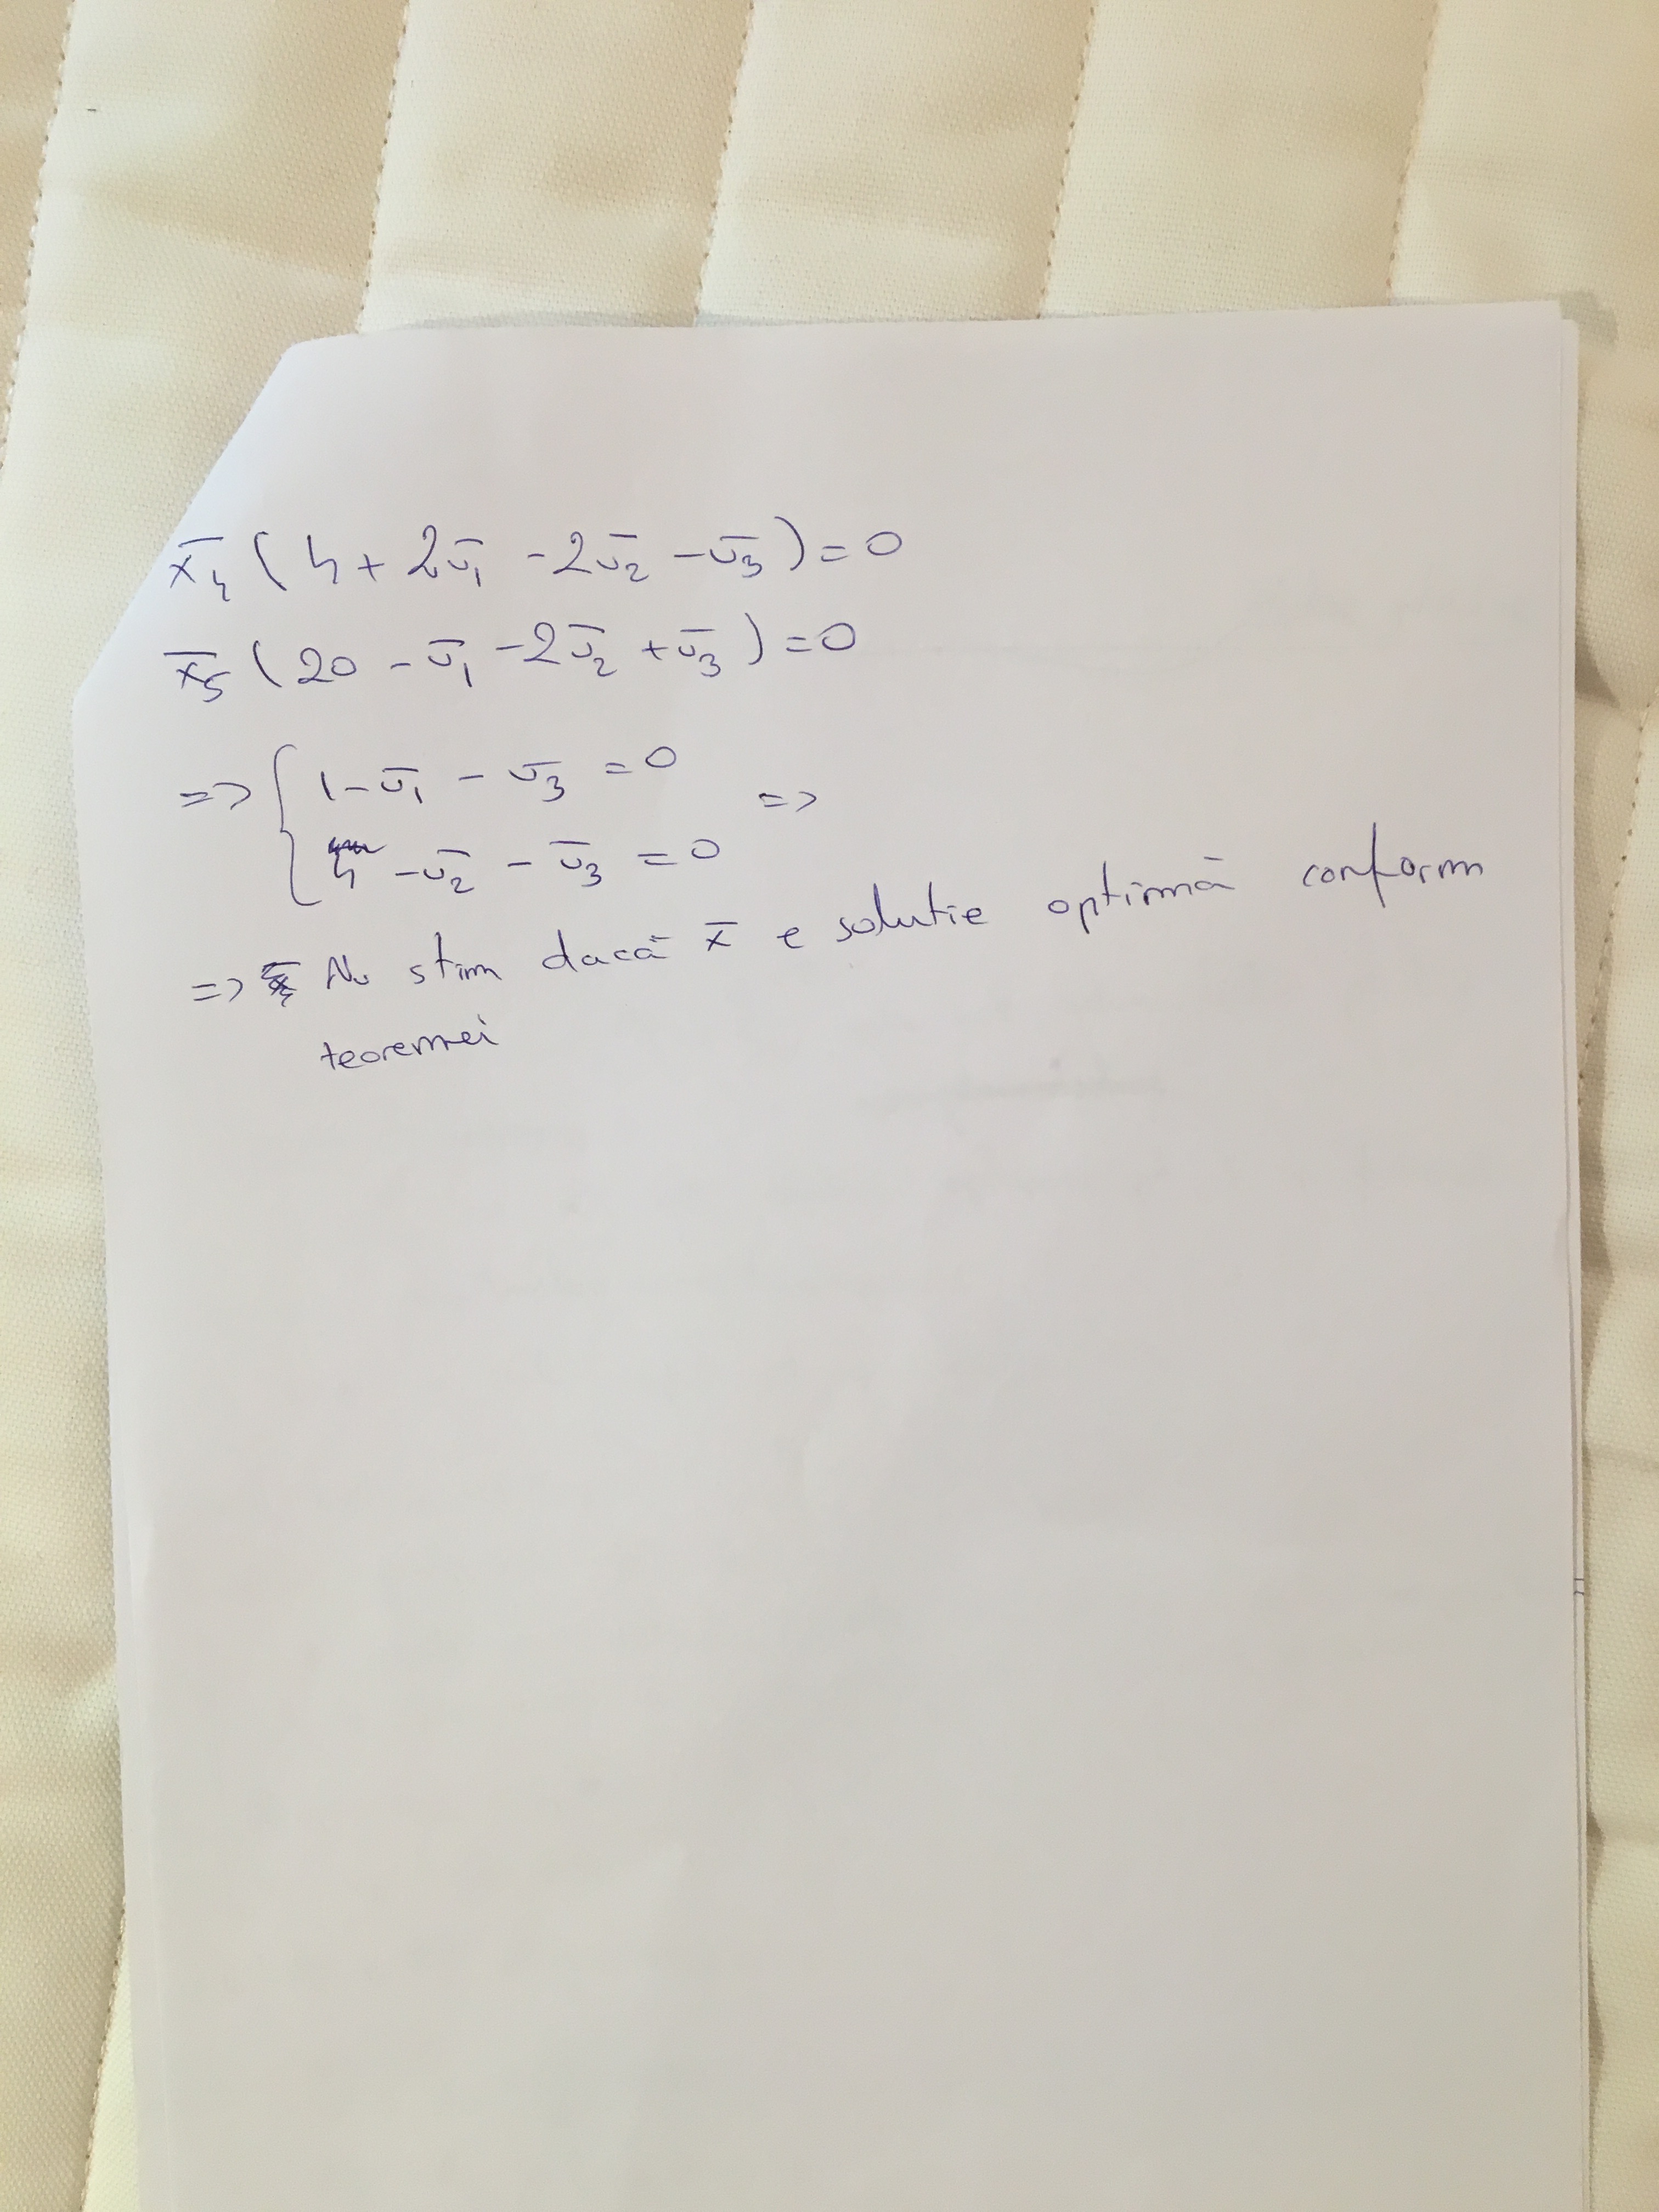 x̄4 (4 + 2ū1 - 2ū2 - ū3) = 0
x̄5 (20 - ū1 - 2ū2 + ū3) = 0
=> { 1 - ū1 - ū3 = 0 =>
4 - ū2 - ū3 = 0
=> Nu stim dacă x̄ e solutie optimă conform
teoremei